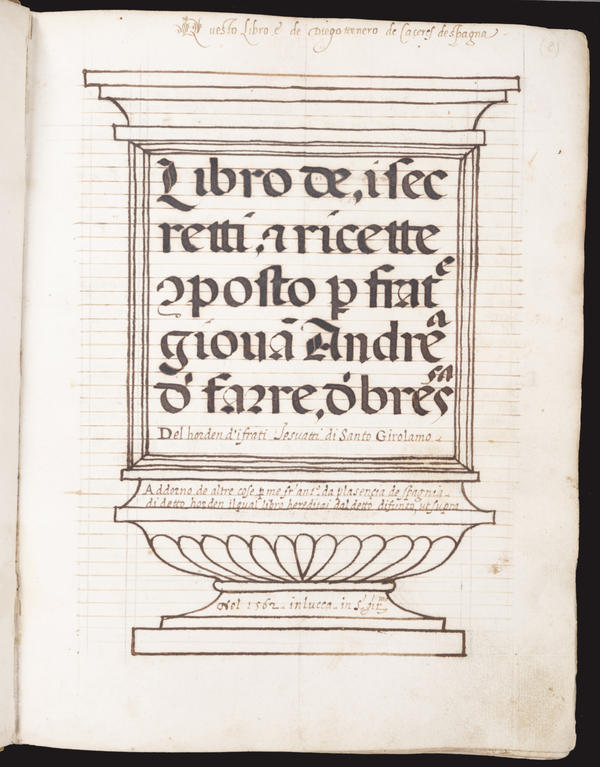 Questo Libro e de Diego tenero de Caceres de spagna
Libro de, i sec
retti, ⁊ ricette
ꝯposto ꝑ frate
giouā Andrea
d' farre, d' bresˢᵃ
Del horden d'i frati Jesuatti di Santo Girolamo
Addorno de altre cose ꝑ me frᵃ antº da plasencia de spagnia.
di detto horden il qual libro hereditai dal detto difunto, ut supra
Nel 1562 in lucca in S. girᵐᵒ